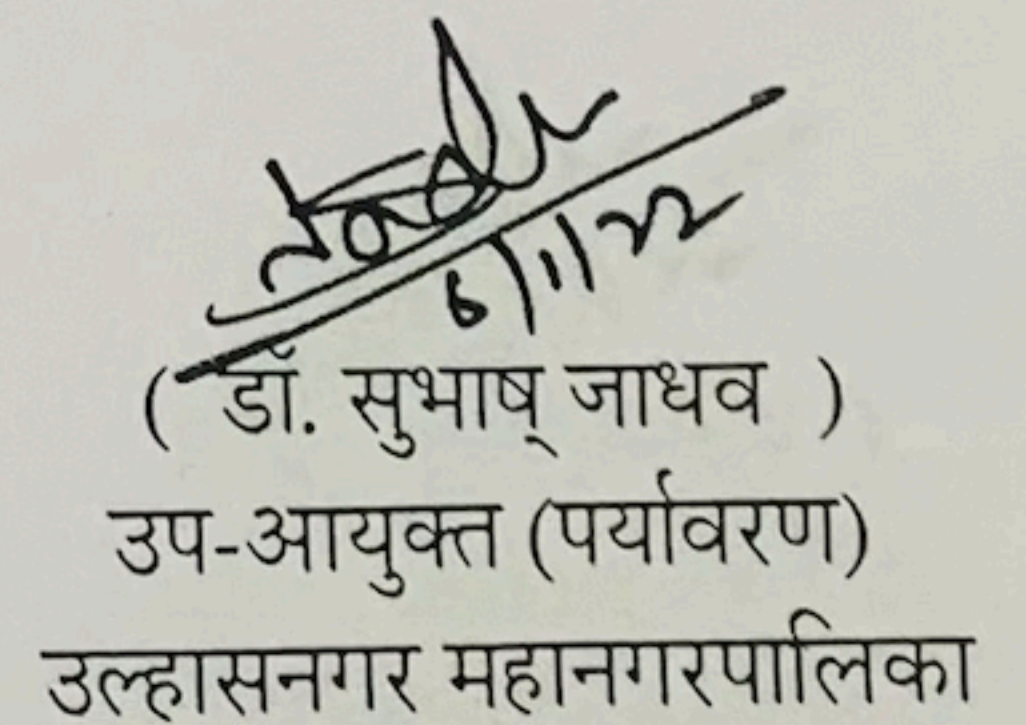 6/11/22
( डॉ. सुभाष् जाधव )
उप-आयुक्त (पर्यावरण)
उल्हासनगर महानगरपालिका